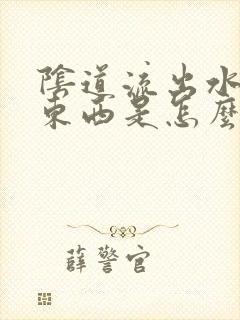 陰道流出水
東西是怎麼
薛警官